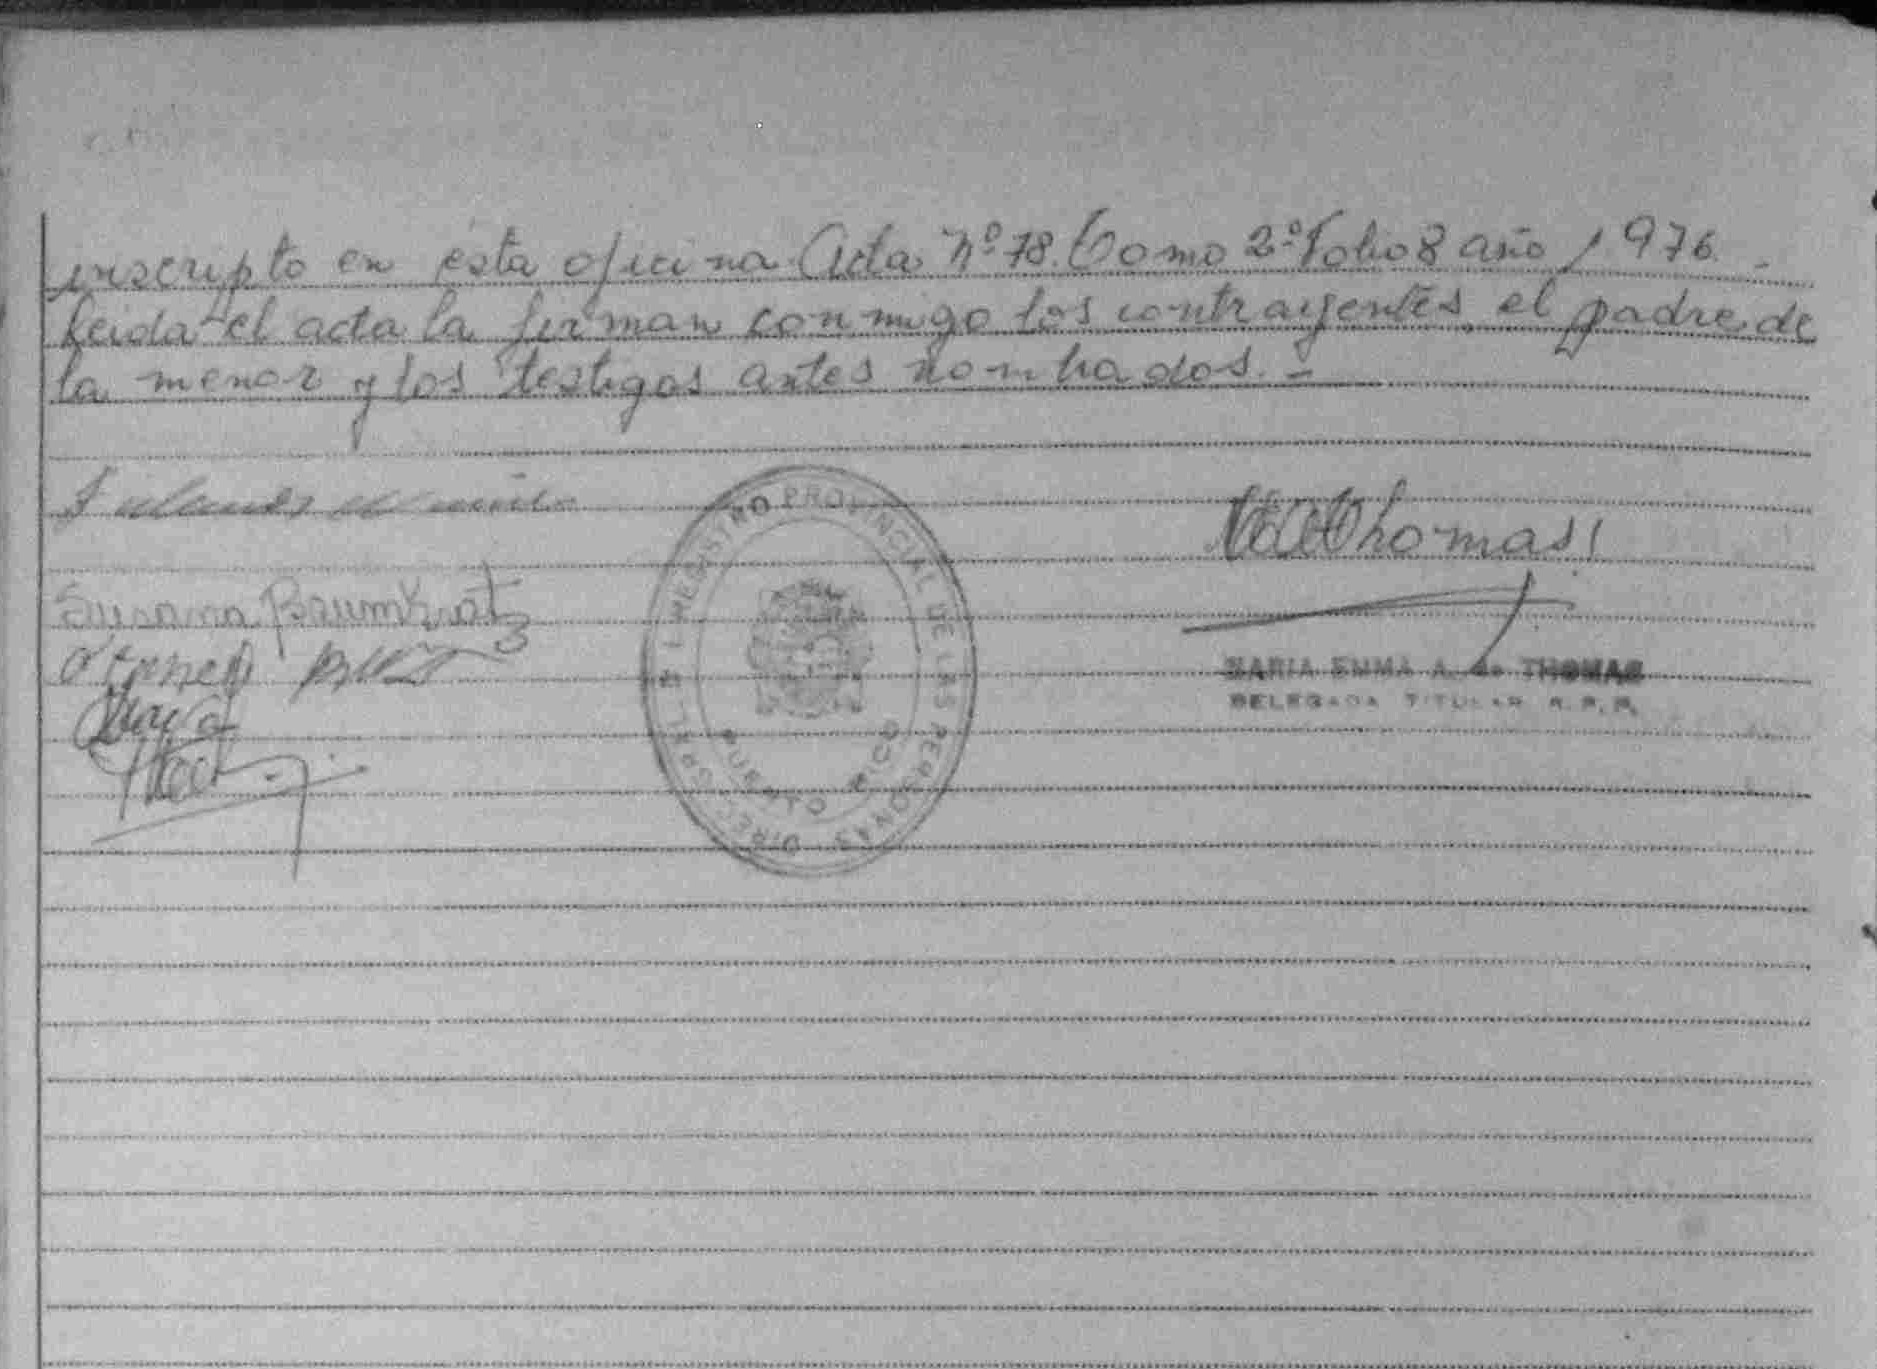 inscripto en ésta oficina Acta Nº 78. Tomo 2º Folio 8 año 1976. -
Leida el acta la firman conmigo los contrayentes, el padre de
la menor y los testigos antes nombrados. -
REGISTRO PROVINCIAL DE LAS PERSONAS
PUERTO RICO
Thomas
Susana Baumkratz
MARIA EMMA A. de THOMAS
DELEGADA TITULAR R.P.P.